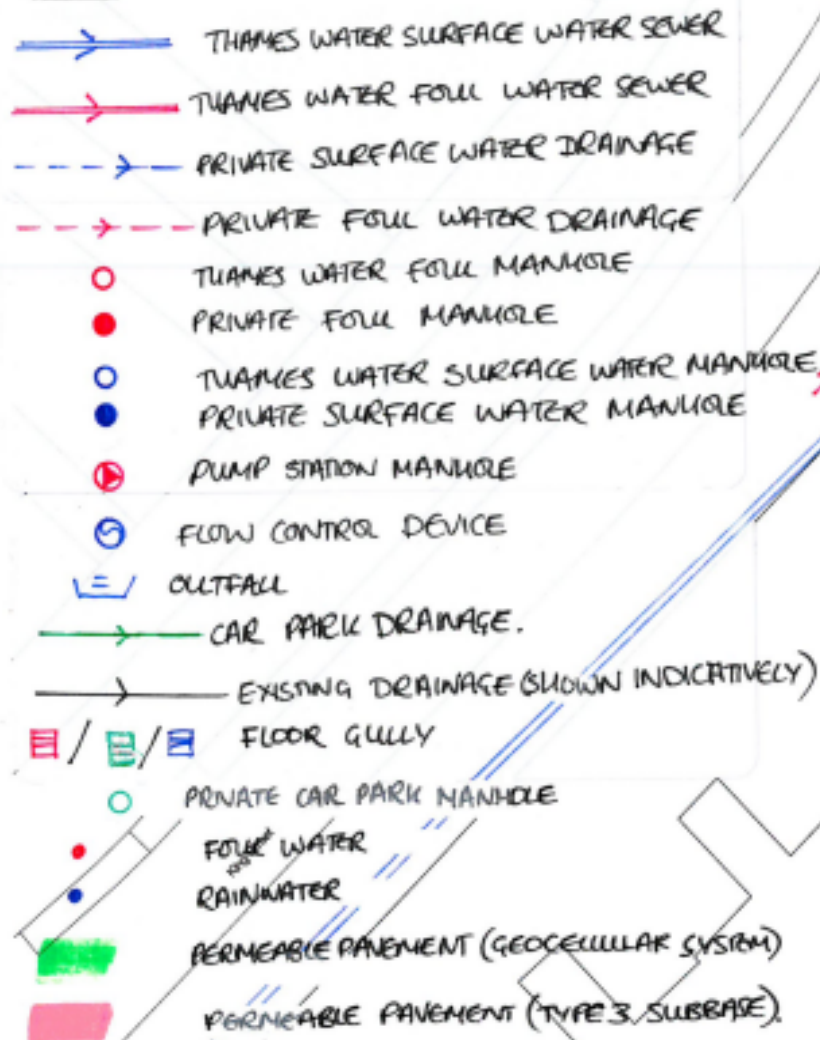 THAMES WATER SURFACE WATER SEWER
THAMES WATER FOUL WATER SEWER
PRIVATE SURFACE WATER DRAINAGE
PRIVATE FOUL WATER DRAINAGE
THAMES WATER FOUL MANHOLE
PRIVATE FOUL MANHOLE
THAMES WATER SURFACE WATER MANHOLE
PRIVATE SURFACE WATER MANHOLE
PUMP STATION MANHOLE
FLOW CONTROL DEVICE
OUTFALL
CAR PARK DRAINAGE.
EXISTING DRAINAGE (SHOWN INDICATIVELY)
FLOOR GULLY
PRIVATE CAR PARK MANHOLE
FOUL WATER
RAINWATER
PERMEABLE PAVEMENT (GEOCELLULAR SYSTEM)
PERMEABLE PAVEMENT (TYPE 3 SUBBASE).